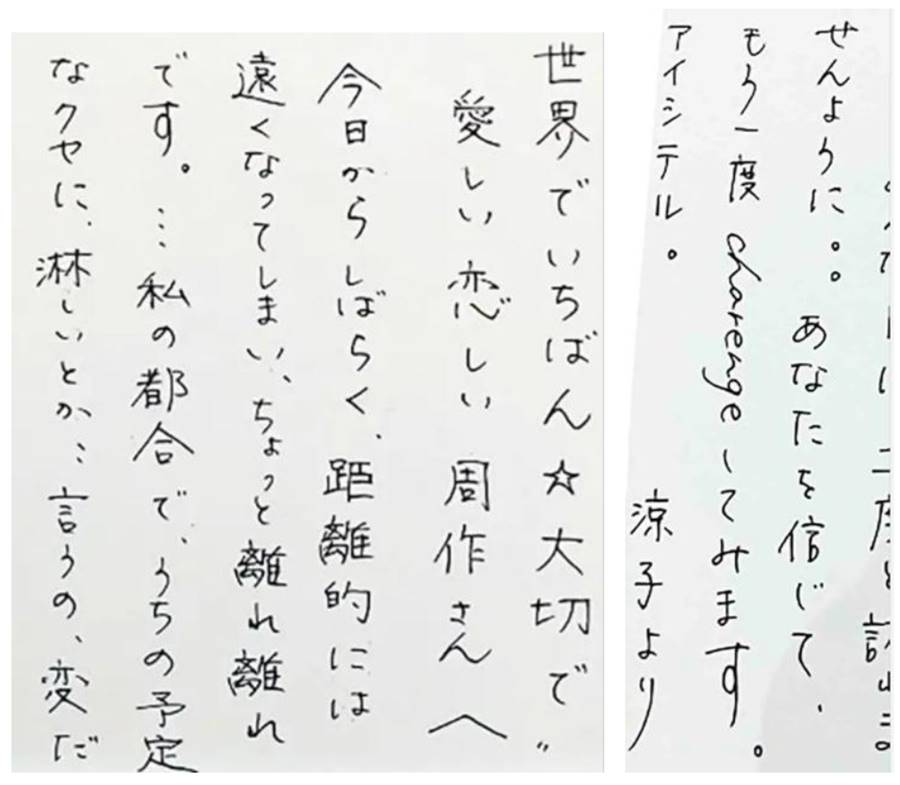 世界でいちばん☆大切で〃
愛しい恋しい周作さんへ
今日からしばらく、距離的には
遠くなってしまい、ちょっと離れ離れ
です。…私の都合で、うちの予定
なクセに、淋しいとか…言うの、変だ
二度と許しま
せんように。。あなたを信じて、
もう一度charengeしてみます。
アイシテル。
涼子より